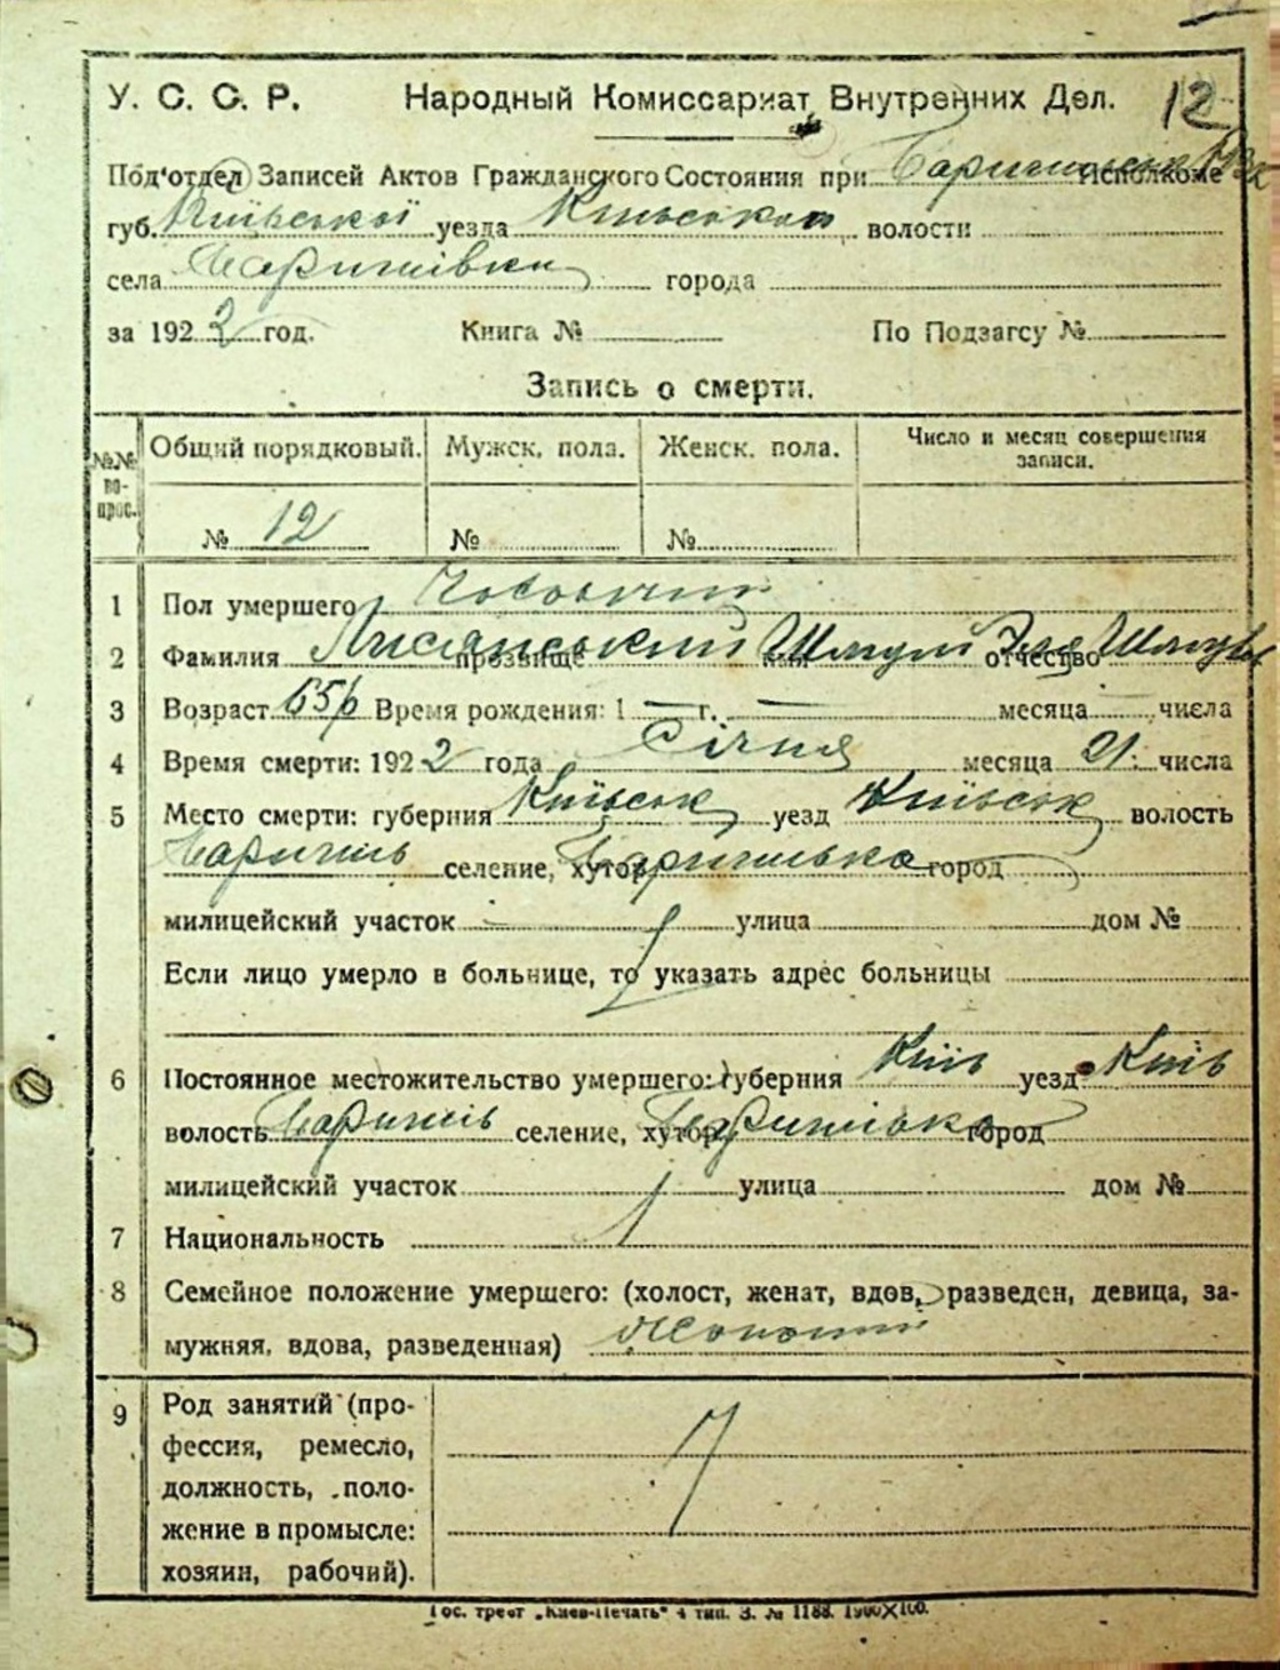 У. С. С. Р. Народный Комиссариат Внутренних Дел. 12
Под'отдел Записей Актов Гражданского Состояния при Исполкоме
губ. Київської уезда волости
села Баришівки города
за 1922 год. Книга № По Подзагсу №
Запись о смерти.
№№ во-прос. Общий порядковый. Мужск. пола. Женск. пола. Число и месяц совершения записи.
№ 12 № №
1 Пол умершего Чоловічий
2 Фамилия Лисянський прозвище имя Шмуль отчество
3 Возраст 65р Время рождения: 1 — г. — месяца — числа
4 Время смерти: 1922 года Січня месяца 21. числа
5 Место смерти: губерния Київськ уезд Київськ волость
Бариш селение, хутор Баришівка город
милицейский участок улица дом №
Если лицо умерло в больнице, то указать адрес больницы
6 Постоянное местожительство умершего: губерния Київ уезд Київ
волость Бариш селение, хутор Баришівка город
милицейский участок улица дом №
7 Национальность
8 Семейное положение умершего: (холост, женат, вдов, разведен, девица, за-
мужняя, вдова, разведенная)
9 Род занятий (про-
фессия, ремесло,
должность, поло-
жение в промысле:
хозяин, рабочий).
Гос. трест „Киев-Печать" 4 тип. З. № 1188. 1900×100.